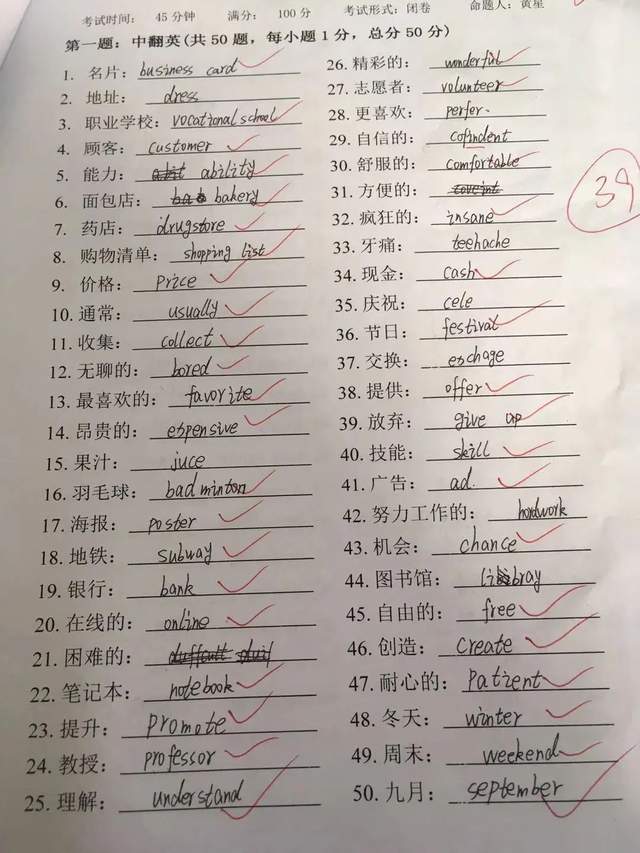 考试时间： 45分钟 满分： 100分 考试形式：闭卷 命题人：黄星
第一题：中翻英(共50题，每小题1分，总分50分)
1. 名片：business card
2. 地址： dress
3. 职业学校：vocational school
4. 顾客： customer
5. 能力： ability
6. 面包店： bakery
7. 药店： drugstore
8. 购物清单： shopping list
9. 价格： price
10. 通常： usually
11. 收集： collect
12. 无聊的： bored
13. 最喜欢的： favorite
14. 昂贵的： espensive
15. 果汁： juce
16. 羽毛球： badminton
17. 海报： poster
18. 地铁： subway
19. 银行： bank
20. 在线的： online
21. 困难的：
22. 笔记本： notebook
23. 提升： promote
24. 教授： professor
25. 理解： understand
26. 精彩的： wonderful
27. 志愿者： volunteer
28. 更喜欢： perfer.
29. 自信的： cofindent
30. 舒服的： comfortable
31. 方便的：
32. 疯狂的： insane
33. 牙痛： teehache
34. 现金： cash
35. 庆祝： cele
36. 节日： festival
37. 交换： eschage
38. 提供： offer
39. 放弃： give up
40. 技能： skill
41. 广告： ad.
42. 努力工作的： hardwork
43. 机会： chance
44. 图书馆：
45. 自由的： free
46. 创造： create
47. 耐心的： patient
48. 冬天： winter
49. 周末： weekend
50. 九月： september
39